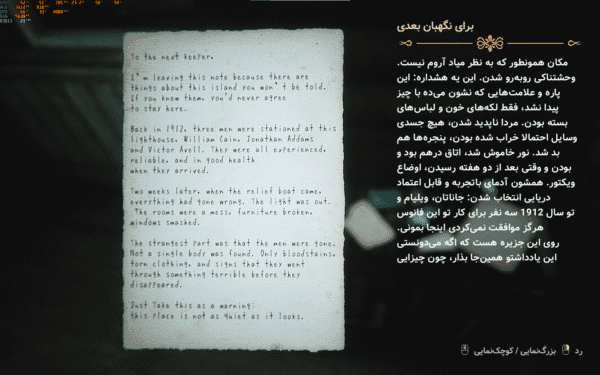 To the next keeper,
I'm leaving this note because there are
things about this island you won't be told.
If you knew them, you'd never agree
to stay here.
Back in 1912, three men were stationed at this
lighthouse, William Cain, Jonathan Addams
and Victor Avell. They were all experienced,
reliable, and in good health
when they arrived.
Two weeks later, when the relief boat came,
everything had gone wrong. The light was out.
The rooms were a mess, furniture broken,
windows smashed.
The strangest part was that the men were gone.
Not a single body was found. Only bloodstains,
torn clothing, and signs that they went
through something terrible before they
disappeared.
Just Take this as a warning:
this place is not as quiet as it looks.
برای نگهبان بعدی
مکان همونطور که به نظر میاد آروم نیست.
وحشتناکی روبه‌رو شدن. این یه هشداره: این
پاره و علامت‌هایی که نشون می‌ده با چیز
پیدا نشد، فقط لکه‌های خون و لباس‌های
بسته بودن. مردا ناپدید شدن، هیچ جسدی
وسایل احتمالا خراب شده بودن، پنجره‌ها هم
بد شد. نور خاموش شد، اتاق درهم بود و
بودن و وقتی بعد از دو هفته رسیدن، اوضاع
ویکتور. همشون آدمای باتجربه و قابل اعتماد
دریایی انتخاب شدن: جاناتان، ویلیام و
تو سال 1912 سه نفر برای کار تو این فانوس
هرگز موافقت نمی‌کردی اینجا بمونی.
روی این جزیره هست که اگه می‌دونستی
این یادداشتو همین‌جا بذار، چون چیزایی
رد
بزرگ‌نمایی / کوچک‌نمایی